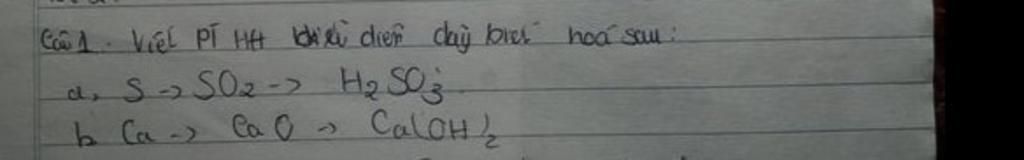 Câu 1. Viết PT HH biểu diễn dãy biến hoá sau:
a, S -> SO2 -> H2SO3.
b Ca -> CaO -> Ca(OH)2